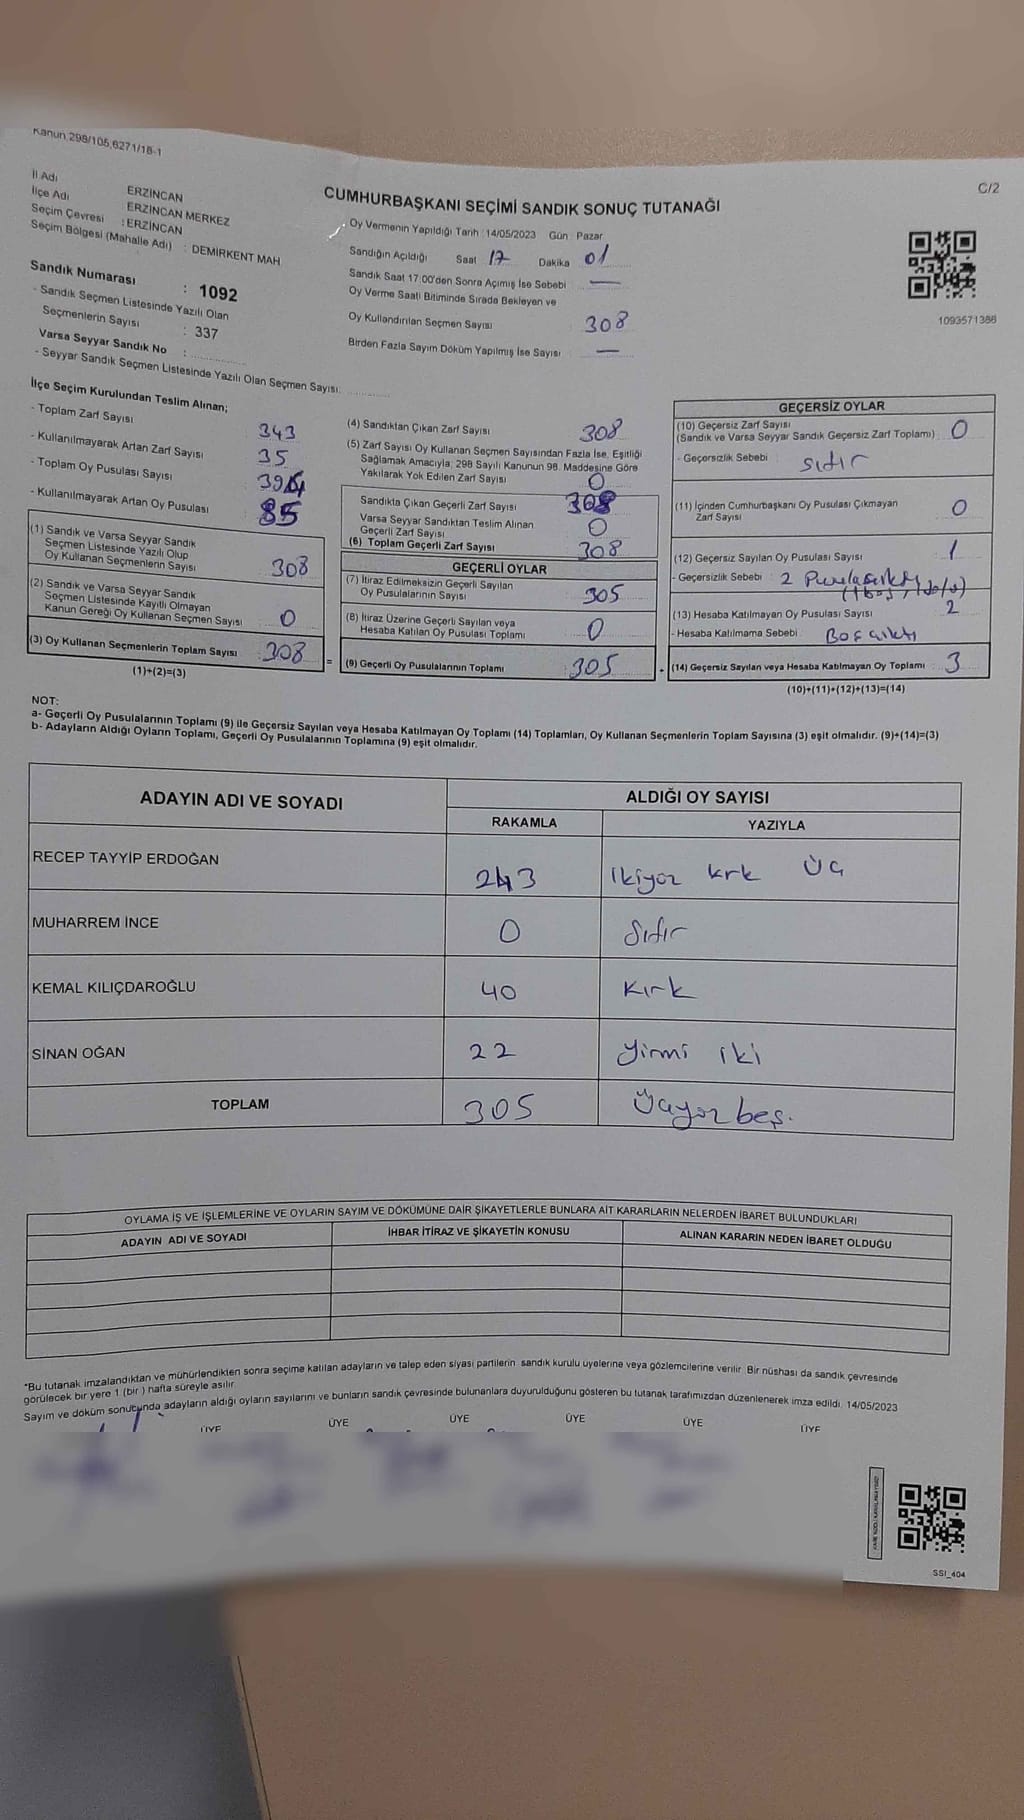 Kanun 298/105,6271/18-1
C/2
İl Adı ERZİNCAN
İlçe Adı ERZİNCAN MERKEZ
Seçim Çevresi : ERZİNCAN
Seçim Bölgesi (Mahalle Adı) : DEMİRKENT MAH
CUMHURBAŞKANI SEÇİMİ SANDIK SONUÇ TUTANAĞI
Oy Vermenin Yapıldığı Tarih :14/05/2023 Gün : Pazar
Sandığın Açıldığı Saat 17 Dakika 01
Sandık Saat 17:00'den Sonra Açımış İse Sebebi —
Oy Verme Saati Bitiminde Sırada Bekleyen ve
Oy Kullandırılan Seçmen Sayısı 308
Birden Fazla Sayım Döküm Yapılmış İse Sayısı —
1093571386
Sandık Numarası : 1092
- Sandık Seçmen Listesinde Yazılı Olan
Seçmenlerin Sayısı : 337
Varsa Seyyar Sandık No :
- Seyyar Sandık Seçmen Listesinde Yazılı Olan Seçmen Sayısı:
İlçe Seçim Kurulundan Teslim Alınan;
- Toplam Zarf Sayısı 343
- Kullanılmayarak Artan Zarf Sayısı 35
- Toplam Oy Pusulası Sayısı
- Kullanılmayarak Artan Oy Pusulası 85
(1) Sandık ve Varsa Seyyar Sandık
Seçmen Listesinde Yazılı Olup
Oy Kullanan Seçmenlerin Sayısı 308
(2) Sandık ve Varsa Seyyar Sandık
Seçmen Listesinde Kayıtlı Olmayan
Kanun Gereği Oy Kullanan Seçmen Sayısı 0
(3) Oy Kullanan Seçmenlerin Toplam Sayısı 308 =
(1)+(2)=(3)
(4) Sandıktan Çıkan Zarf Sayısı 308
(5) Zarf Sayısı Oy Kullanan Seçmen Sayısından Fazla İse, Eşitliği
Sağlamak Amacıyla, 298 Sayılı Kanunun 98. Maddesine Göre
Yakılarak Yok Edilen Zarf Sayısı 0
Sandıkta Çıkan Geçerli Zarf Sayısı 308
Varsa Seyyar Sandıktan Teslim Alınan
Geçerli Zarf Sayısı 0
(6) Toplam Geçerli Zarf Sayısı 308
GEÇERLİ OYLAR
(7) İtiraz Edilmeksizin Geçerli Sayılan
Oy Pusulalarının Sayısı 305
(8) İtiraz Üzerine Geçerli Sayılan veya
Hesaba Katılan Oy Pusulası Toplamı 0
(9) Geçerli Oy Pusulalarının Toplamı 305 +
GEÇERSİZ OYLAR
(10) Geçersiz Zarf Sayısı
(Sandık ve Varsa Seyyar Sandık Geçersiz Zarf Toplamı) 0
- Geçersizlik Sebebi sıfır
(11) İçinden Cumhurbaşkanı Oy Pusulası Çıkmayan
Zarf Sayısı 0
(12) Geçersiz Sayılan Oy Pusulası Sayısı 1
- Geçersizlik Sebebi : 2
(13) Hesaba Katılmayan Oy Pusulası Sayısı 2
- Hesaba Katılmama Sebebi Boş çıktı
(14) Geçersiz Sayılan veya Hesaba Katılmayan Oy Toplamı 3
(10)+(11)+(12)+(13)=(14)
NOT:
a- Geçerli Oy Pusulalarının Toplamı (9) ile Geçersiz Sayılan veya Hesaba Katılmayan Oy Toplamı (14) Toplamları, Oy Kullanan Seçmenlerin Toplam Sayısına (3) eşit olmalıdır. (9)+(14)=(3)
b- Adayların Aldığı Oyların Toplamı, Geçerli Oy Pusulalarının Toplamına (9) eşit olmalıdır.
ADAYIN ADI VE SOYADI ALDIĞI OY SAYISI
RAKAMLA YAZIYLA
RECEP TAYYİP ERDOĞAN 243 ikiyüz kırk üç
MUHARREM İNCE 0 Sıfır
KEMAL KILIÇDAROĞLU 40 Kırk
SİNAN OĞAN 22 yirmi iki
TOPLAM 305 Üçyüz beş.
OYLAMA İŞ VE İŞLEMLERİNE VE OYLARIN SAYIM VE DÖKÜMÜNE DAİR ŞİKAYETLERLE BUNLARA AİT KARARLARIN NELERDEN İBARET BULUNDUKLARI
ADAYIN ADI VE SOYADI İHBAR İTİRAZ VE ŞİKAYETİN KONUSU ALINAN KARARIN NEDEN İBARET OLDUĞU
*Bu tutanak imzalandıktan ve mühürlendikten sonra seçime katılan adayların ve talep eden siyasi partilerin sandık kurulu üyelerine veya gözlemcilerine verilir. Bir nüshası da sandık çevresinde
görülecek bir yere 1 (bir ) hafta süreyle asılır.
Sayım ve döküm sonucunda adayların aldığı oyların sayılarını ve bunların sandık çevresinde bulunanlara duyurulduğunu gösteren bu tutanak tarafımızdan düzenlenerek imza edildi. 14/05/2023
ÜYE ÜYE ÜYE ÜYE ÜYE ÜYE
SSI_404